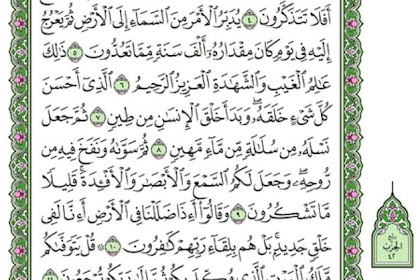 أَفَلَا تَتَذَكَّرُونَ ٤ يُدَبِّرُ ٱلْأَمْرَ مِنَ ٱلسَّمَآءِ إِلَى ٱلْأَرْضِ ثُمَّ يَعْرُجُ
إِلَيْهِ فِى يَوْمٍ كَانَ مِقْدَارُهُۥٓ أَلْفَ سَنَةٍ مِّمَّا تَعُدُّونَ ٥ ذَٰلِكَ
عَٰلِمُ ٱلْغَيْبِ وَٱلشَّهَٰدَةِ ٱلْعَزِيزُ ٱلرَّحِيمُ ٦ ٱلَّذِىٓ أَحْسَنَ
كُلَّ شَىْءٍ خَلَقَهُۥ ۖ وَبَدَأَ خَلْقَ ٱلْإِنسَٰنِ مِن طِينٍ ٧ ثُمَّ جَعَلَ
نَسْلَهُۥ مِن سُلَٰلَةٍ مِّن مَّآءٍ مَّهِينٍ ٨ ثُمَّ سَوَّىٰهُ وَنَفَخَ فِيهِ مِن
رُّوحِهِۦ ۖ وَجَعَلَ لَكُمُ ٱلسَّمْعَ وَٱلْأَبْصَٰرَ وَٱلْأَفْـِٔدَةَ ۚ قَلِيلًا
مَّا تَشْكُرُونَ ٩ وَقَالُوٓا۟ أَءِذَا ضَلَلْنَا فِى ٱلْأَرْضِ أَءِنَّا لَفِى
خَلْقٍ جَدِيدٍۭ ۚ بَلْ هُم بِلِقَآءِ رَبِّهِمْ كَٰفِرُونَ ١٠ قُلْ يَتَوَفَّىٰكُم